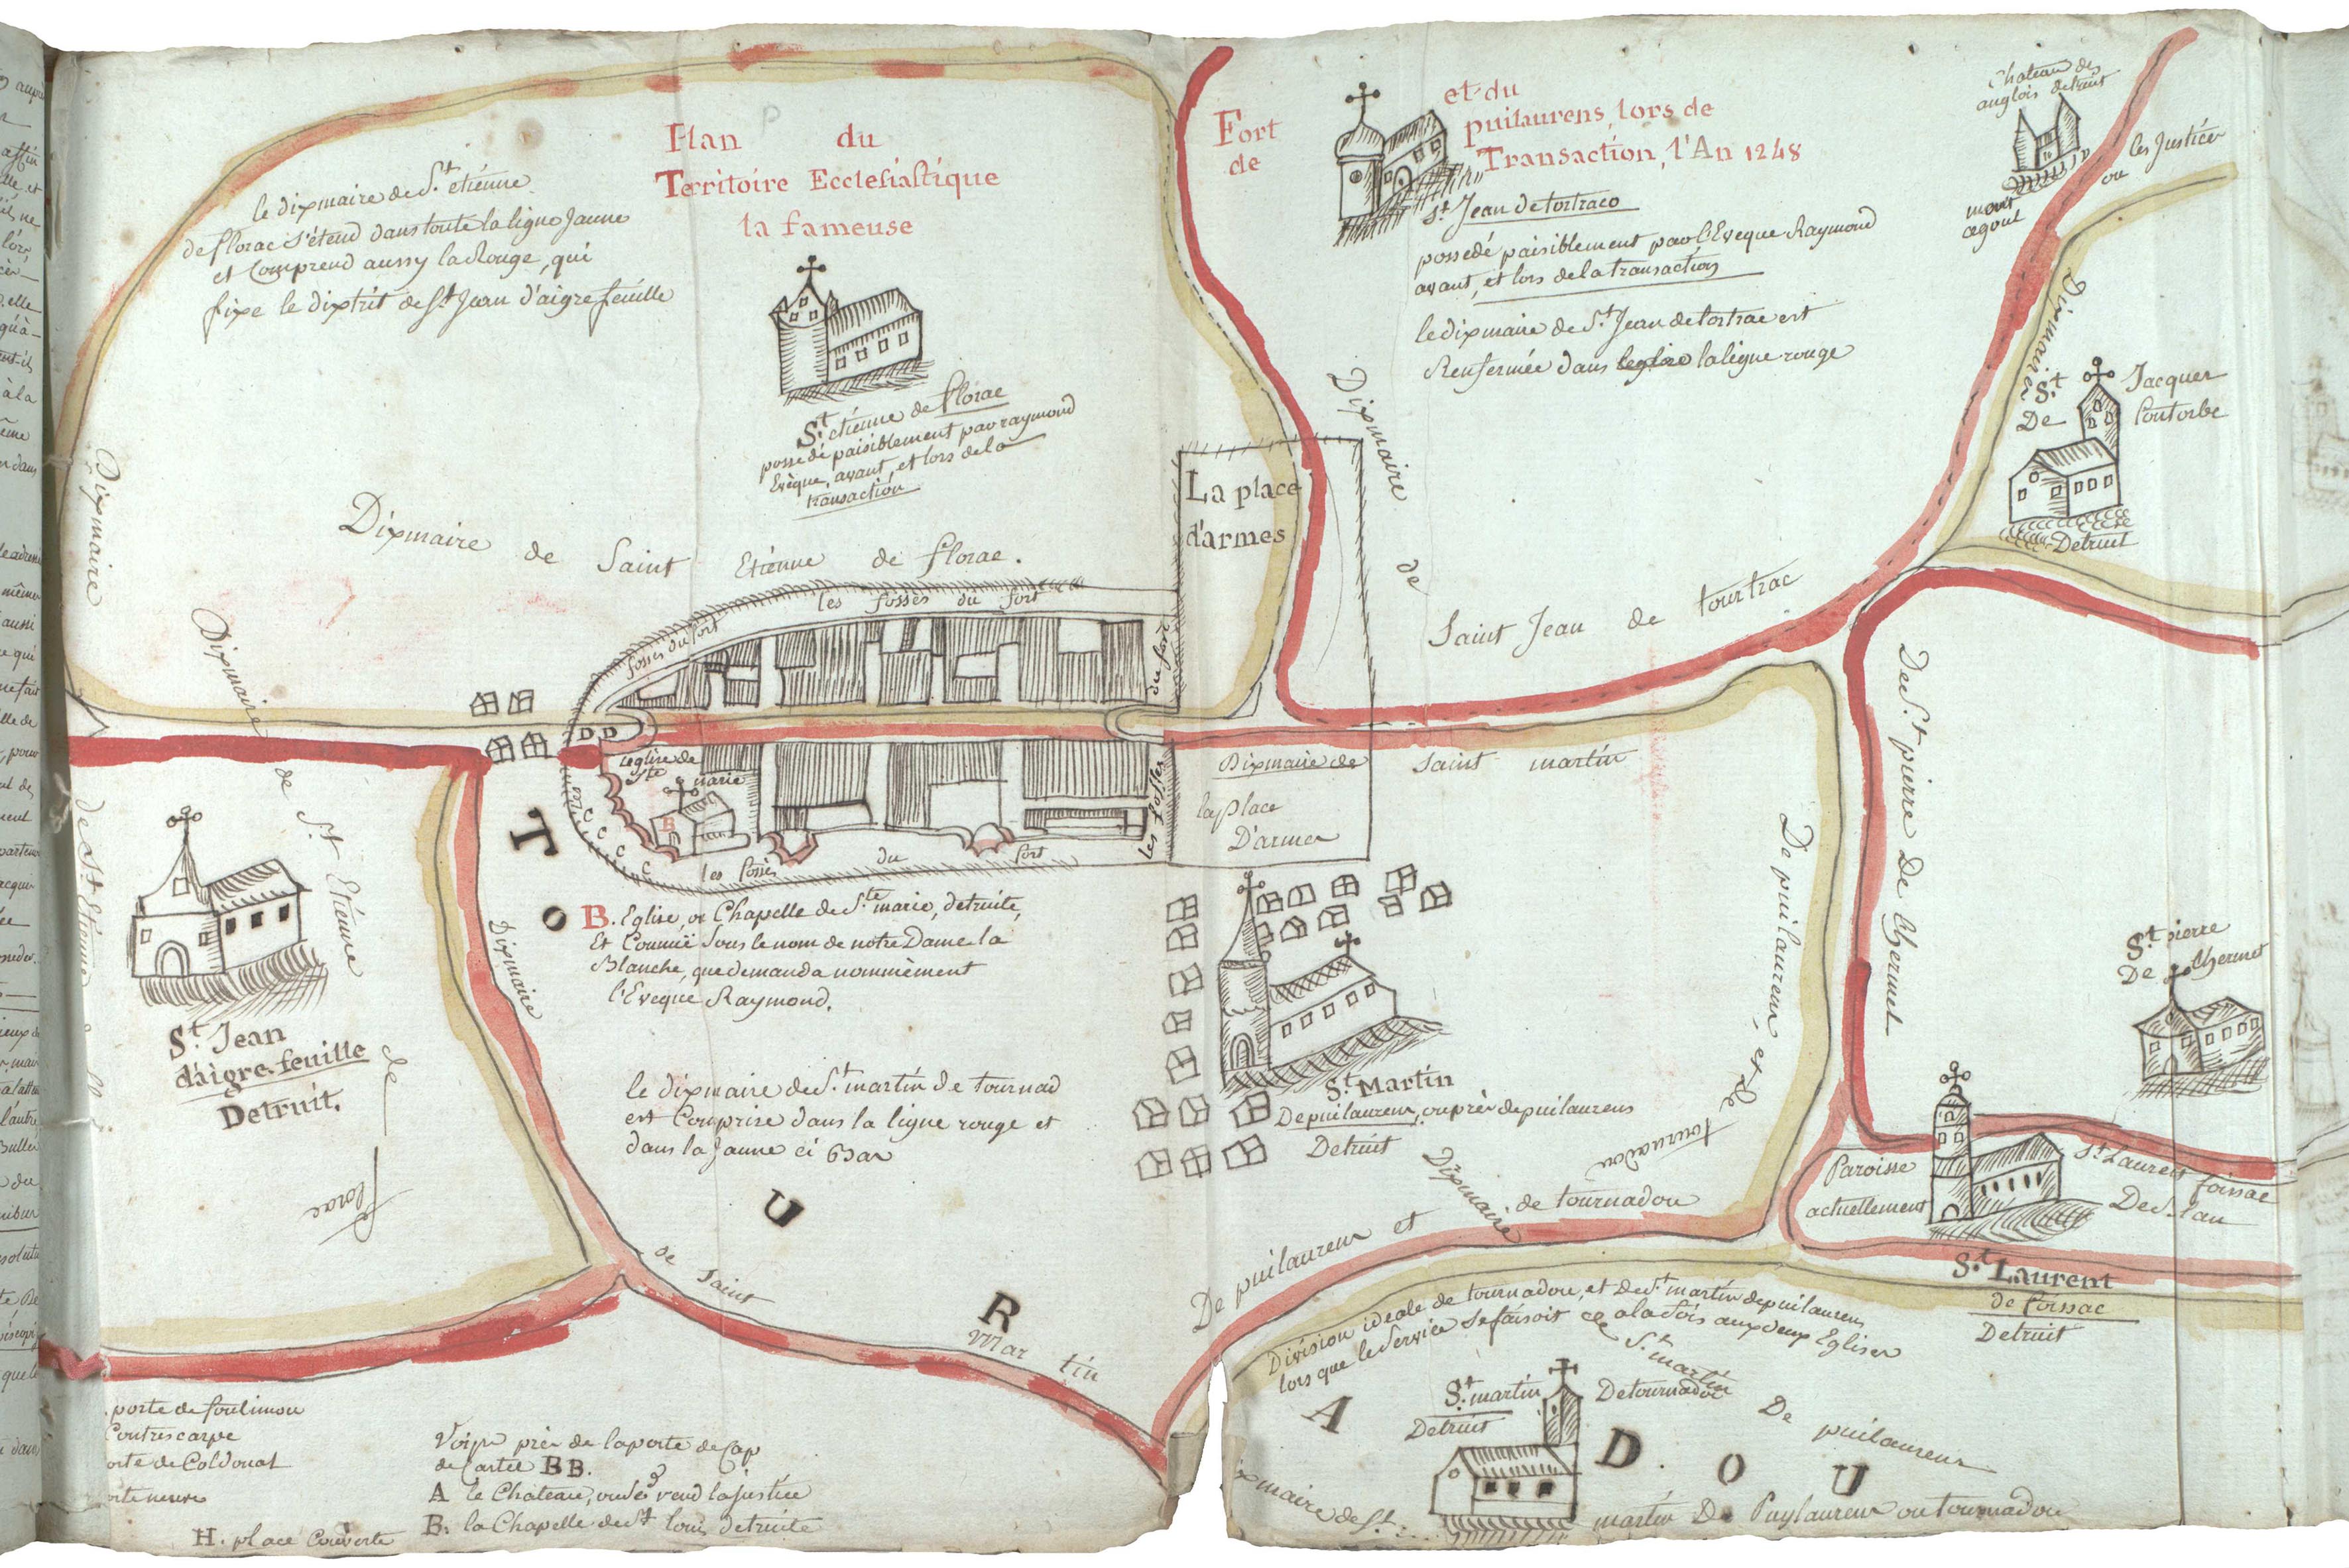 Plan du
Territoire Ecclesiastique
la fameuse
Fort
de
et du
puilaurens, lors de
Transaction, l'An 1248
le dixmaire de St. etiénne
de florac s'étend dans toute la ligne Jaune
et Comprend aussy la Rouge, qui
fixe le distrit de St Jean d'aigrefeuille
St. etiénne de florac
possedé paisiblement par raymond
Evèque, avant, et lors de la
transaction
St. Jean de tortraco
possedé paisiblement par l'Eveque Raymond
avant, et lors de la transaction
le dixmaire de St. Jean de tortrac est
Renfermée dans la ligne rouge
Chateau des
anglois detruit
les Justices
ou
mont
agout
Dixmaire
De
St. Jacques
Contorbe
Detruit
La place
d'armes
Dixmaire de
Saint Jean de tourtrac
Dixmaire de Saint Etiénne de florac.
les fossés du fort
fossés du fort
du fort
les fosses
D D
Leglise de
Ste marie
B
C C C C C
les fossés du fort
Dixmaire de Saint martin
la place
D'armes
De puilaurens, et De tournadou
De St. pierre De Chermet
St. pierre
De Chermet
Dixmaire
de St Etiénne
Dixmaire de St Etiénne de florac
St. Jean
d'aigrefeuille
Detruit.
T O U R N A D O U
B. Eglise, ou Chapelle de Ste. marie, detruite,
Et Connuë sous le nom de notre Dame la
Blanche, que demanda nommèment
l'Eveque Raymond.
le dixmaire de St. martin de tournad
est Comprise dans la ligne rouge et
dans la Jaune ci Bas
St. Martin
De puilaurens, ou près de puilaurens
Detruit
Dixmaire de Saint Martin
De puilaurens et de tournadou
Dixmaire
Paroisse
actuellement
St. Laurent foissac
St. Laurent
de foissac
Detruit
Division ideale de tournadou, et de St martin de puilaurens
lors que le Service se faisoit a la fois aux deux Eglises
St. martin
Detruit
De tournadou
De puilaurens
St. martin
martin De Puylaurens ou tournadou
porte de foulimou
Contrescarpe
porte de Coldouat
porte neuve
H. place Couverte
Voir près de la porte de Cap
de Castel BB.
A le Chateau, ou se rend la justice
B. la Chapelle de St louis detruite